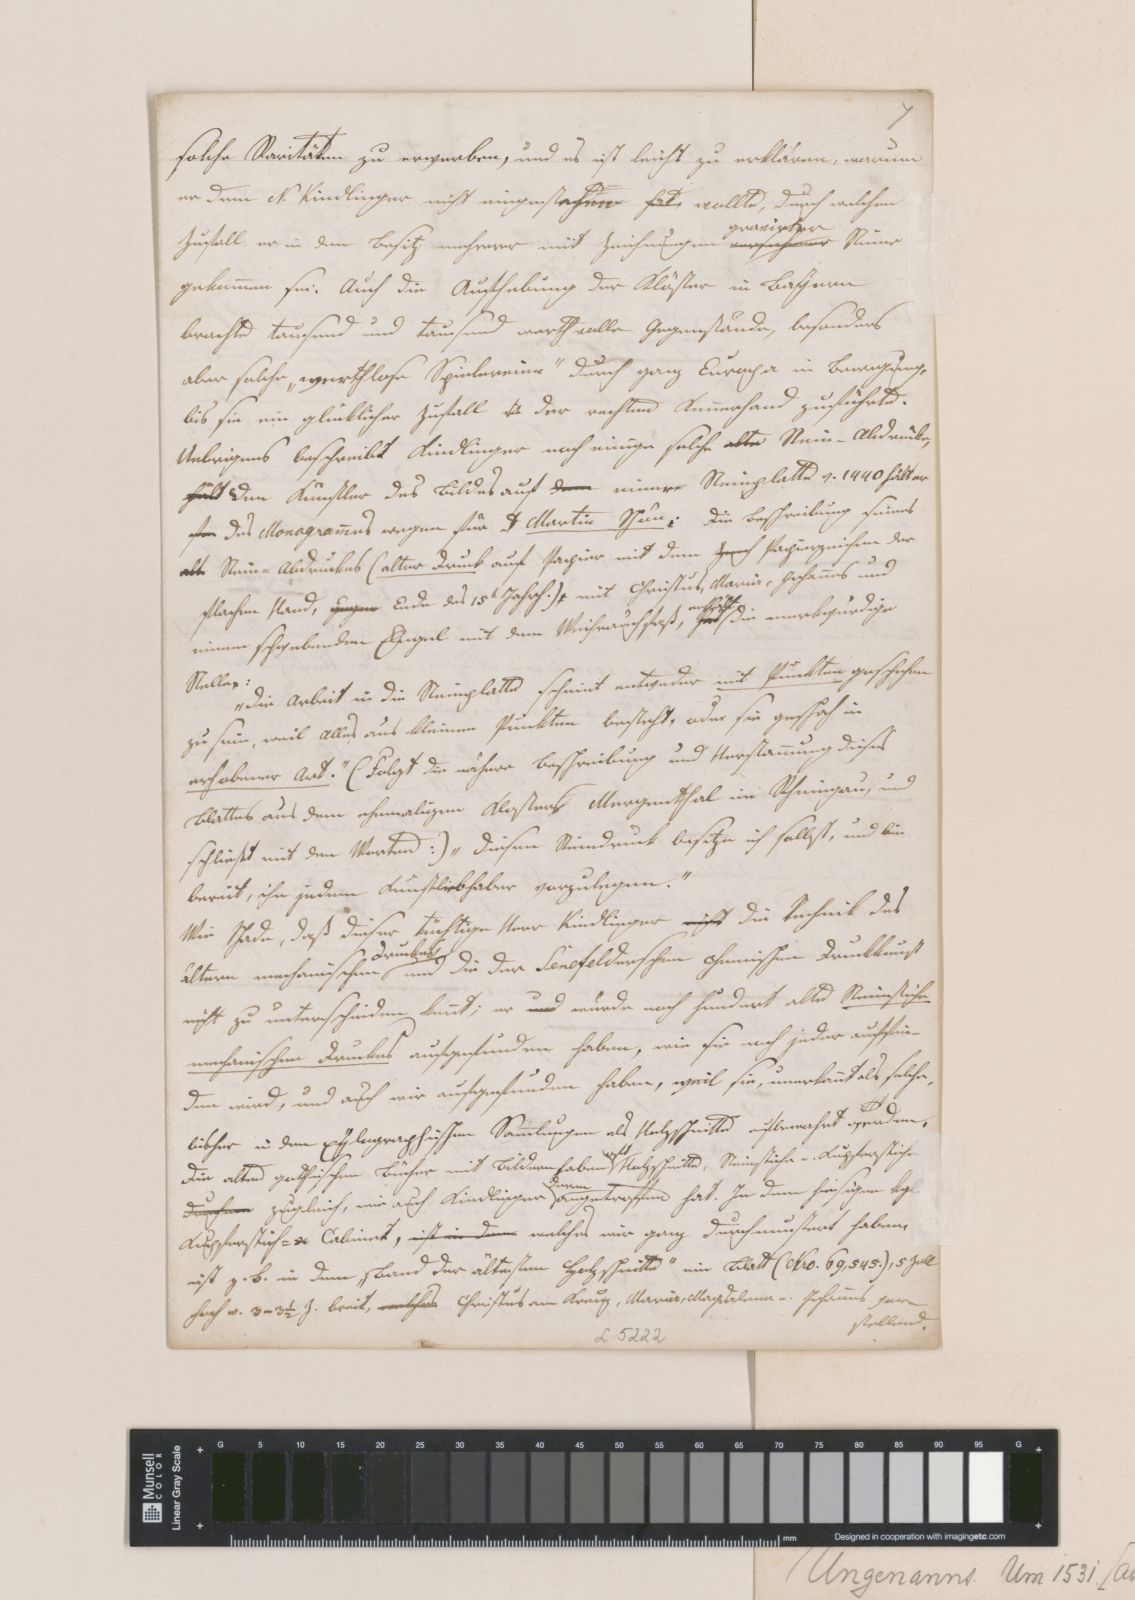 7
solche Raritäten zu erwerben, und es ist leicht zu erklären, warum
er dem N. Kindlinger nicht eingestehen wollte, durch welchen
gravirter
Zufall er in den Besitz mehrerer mit Zeichnungen Steine
gekommen sei. Auch die Aufhebung der Klöster in Bayern
brachte tausend und tausend werthvolle Gegenstände, besonders
aber solche „werthlose Spielereien" durch ganz Europa in Bewegung,
bis sie ein glücklicher Zufall der rechten Kennerhand zuführte.
Uebrigens beschreibt Kindlinger noch einige solche alte Stein-Abdrücke,
hält den Künstler des Bildes auf einer Steinplatte v. 1440 hält er
des Monogram̄es wegen für Martin Schön; die Beschreibung eines
alt. Stein-Abdruckes (alter Druck auf Papier mit dem Papierzeichen der
flachen Hand, Ende des 15t Jahrh.), mit Christus, Maria, Johañes und
enthält
einem schwebenden Engel mit dem Weihrauchfaß, die merkwürdige
Stelle:
„Die Arbeit in die Steinplatte scheint entweder mit Punkten geschehen
zu sein, weil alles aus kleinen Punkten besteht, oder sie geschah in
erhobener Art." (Folgt die nähere Beschreibung und Herstam̄ung dieses
Blattes aus dem ehemaligen Kloster Mergenthal im Rheingau, und
schließt mit den Worten:) „Diesen Steindruck besitze ich selbst, und bin
bereit, ihn jedem Kunstliebhaber vorzulegen."
Wie Schade, daß dieser tüchtige Herr Kindlinger nicht die Technik des
Druckes
ältern mechanischen und die der Senefelderschen chemischen Druckkunst
nicht zu unterscheiden kennt; er würde noch hundert alte Steinstiche
mechanischen Druckes aufgefunden haben, wie sie noch jeder auffin-
den wird, und auch wir aufgefunden haben, weil sie, unerkannt als solche,
bisher in den xylographischen Sam̄lungen als Holzschnitte aufbewahrt werden.
oft
Die alten gothischen Bücher mit Bildern haben Holzschnitte, Steinstiche u. Kupferstiche
deren
zugleich, wie auch Kindlinger angetroffen hat. In dem hiesigen kgl
Kupferstich= Cabinet, welches wir ganz durchmustert haben,
ist z. B. in dem „Band der ältesten Holzschnitte" ein Blatt (Nro. 69,545.), 5 Zoll
hoch u. 3-3½ Z. breit, Christus am Kreuz, Maria, Magdalena u. Johañes vor-
stellend.
L 5222
Munsell
COLOR
Linear Gray Scale
G 5 10 15 20 25 30 35 40 45 50 55 60 65 70 75 80 85 90 95 G
mm
Designed in cooperation with imagingetc.com
Ungenanns. Um 1531. [As